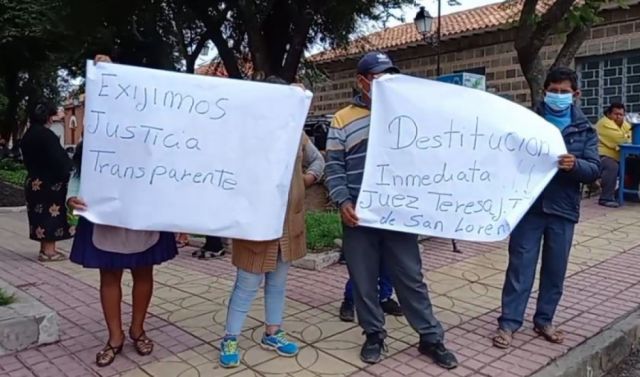 Exijimos
Justicia
Transparente
Destitucion
Inmediata !!!
Juez Teresa J.T
de San Loren